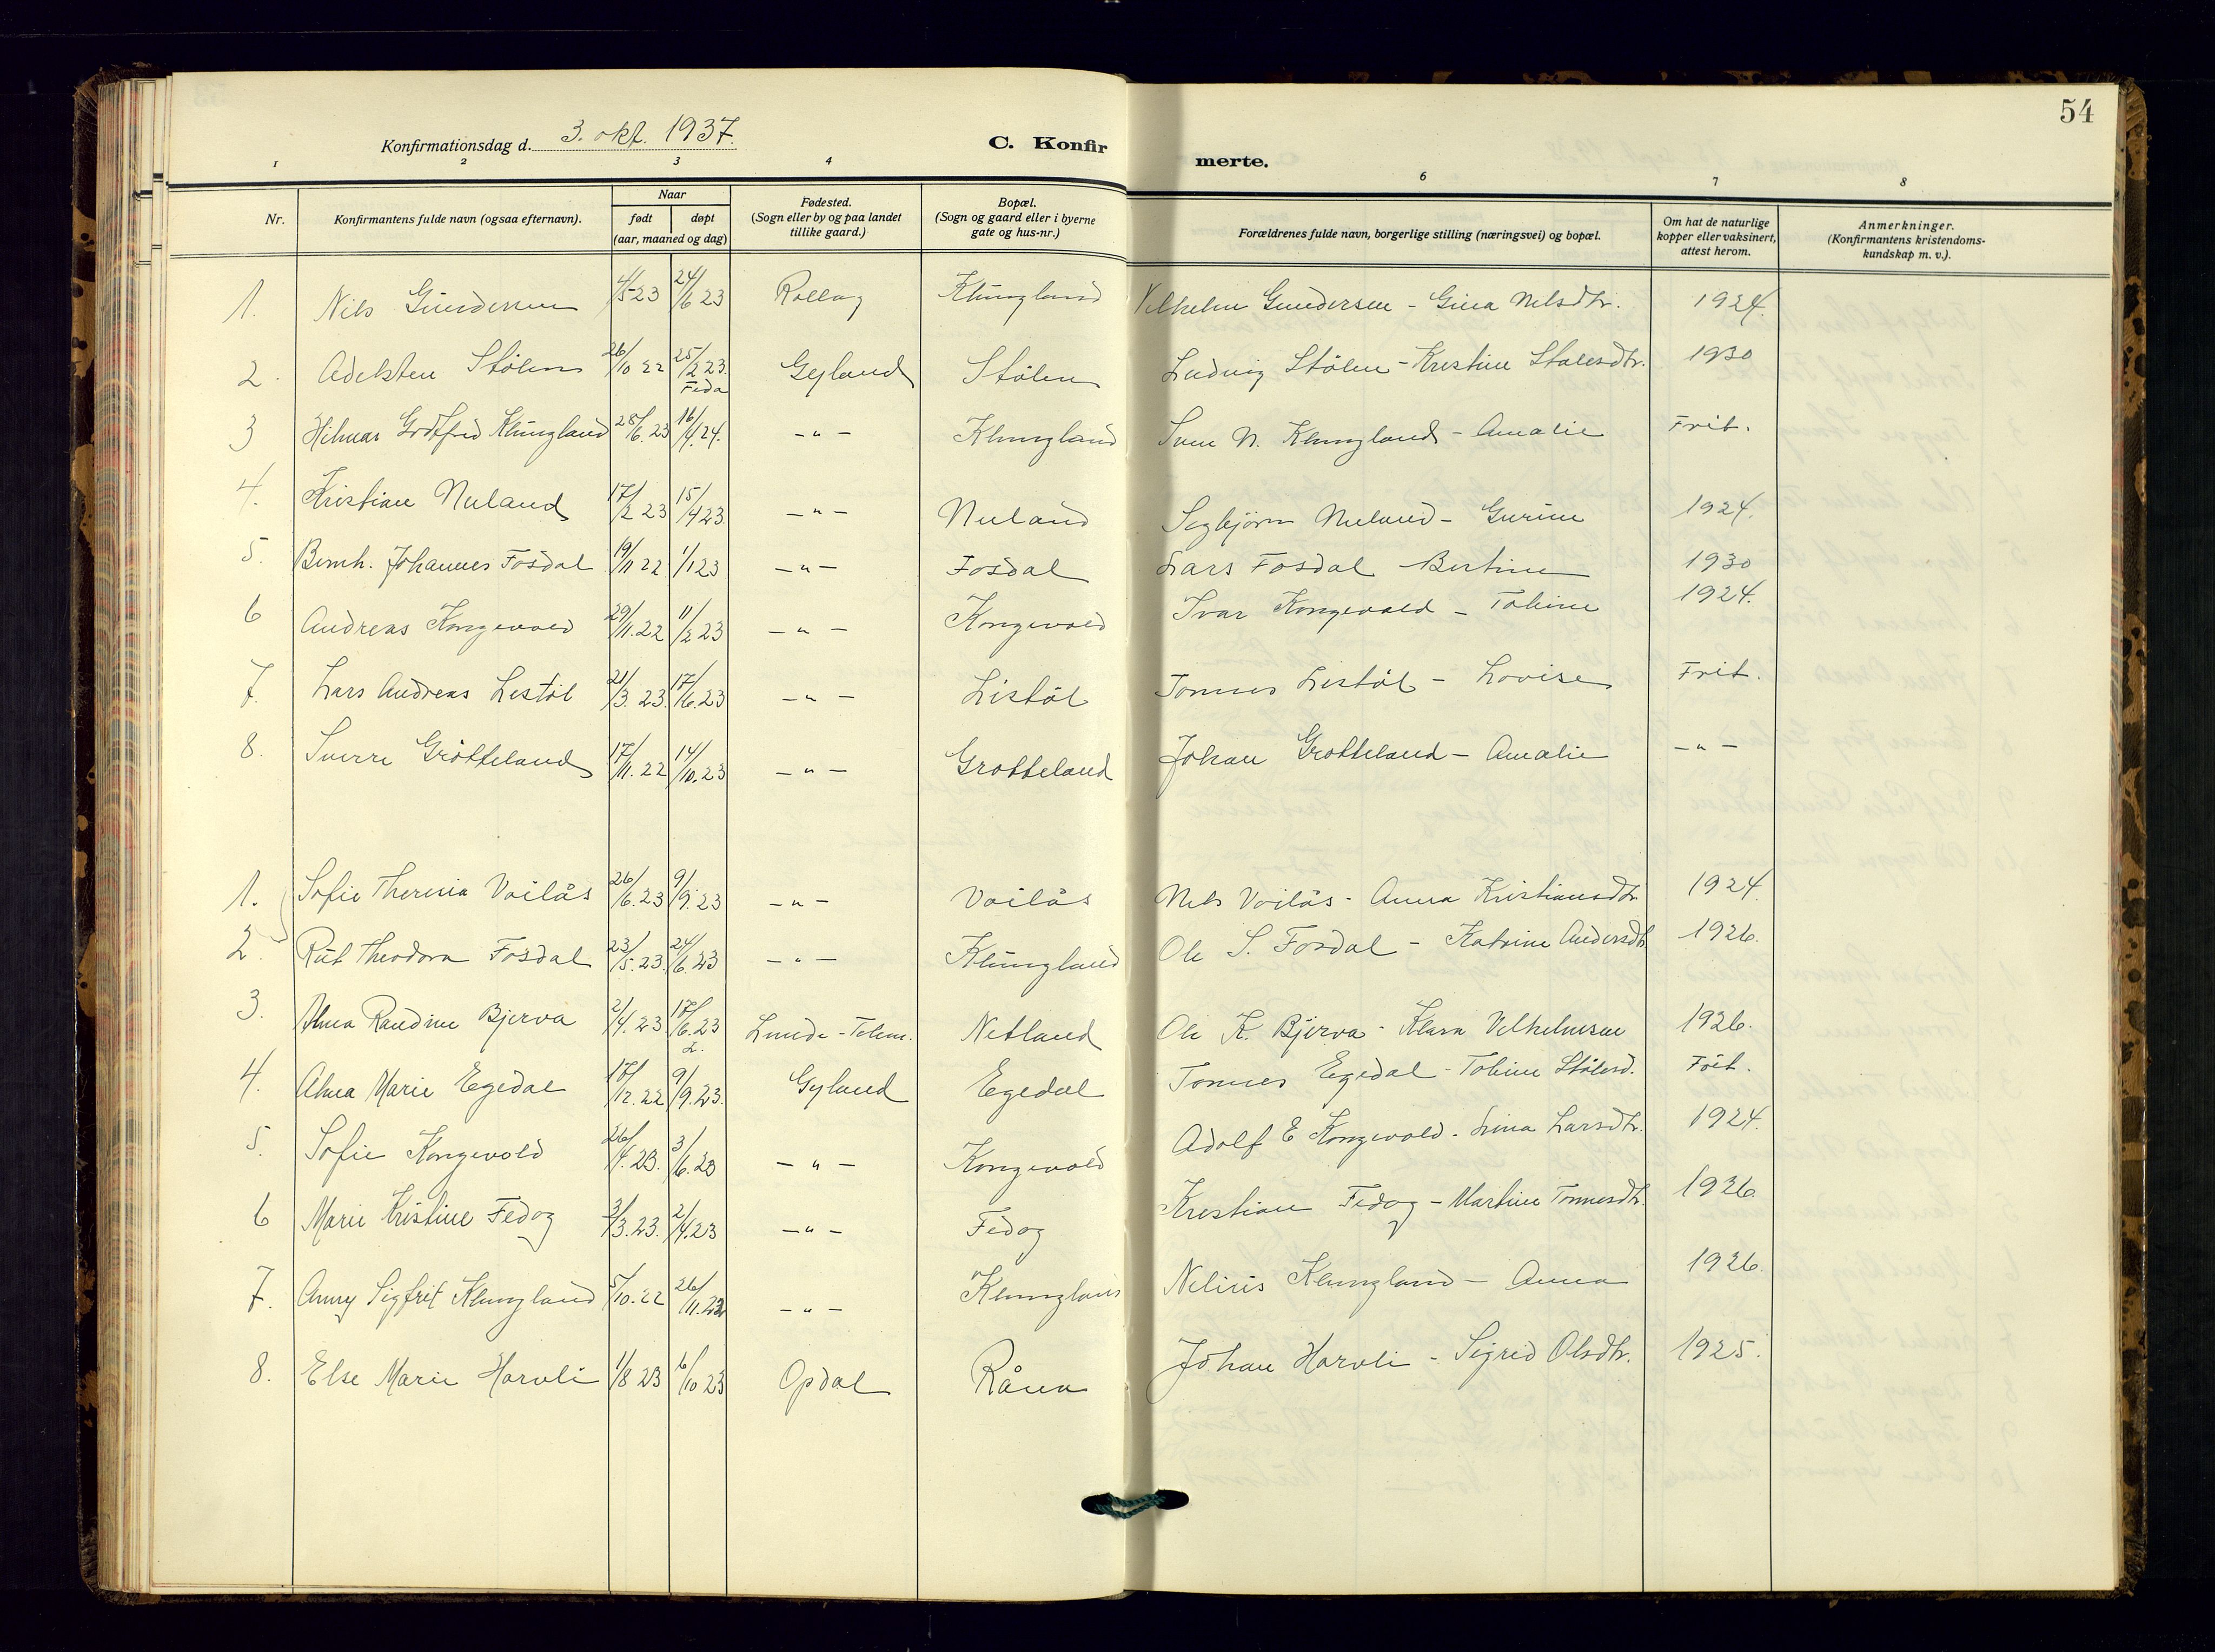 54
Konfirmationsdag d. 3. okt. 1937.
C. Konfirmerte.
1 2 3 4 6 7 8
Nr.
Konfirmantens fulde navn (ogsaa efternavn).
Naar
født døpt
(aar, maaned og dag)
Fødested.
(Sogn eller by og paa landet
tillike gaard.)
Bopæl.
(Sogn og gaard eller i byerne
gate og hus-nr.)
Forældrenes fulde navn, borgerlige stilling (næringsvei) og bopæl.
Om hat de naturlige
kopper eller vaksinert,
attest herom.
Anmerkninger.
(Konfirmantens kristendoms-
kundskap m. v.).
1. Nils Gundersen 4/5 23 24/6 23 Rollag Klungland Vilhelm Gundersen - Gina Nilsdtr. 1924.
2. Adelsten Stölen 26/10 22 25/2 23. Feda Gyland Stölen Ludvig Stölen - Kristine Stalesdtr. 1930
3 Hilmar Godtfred Klungland 28/6. 23 16/4. 24. -"- Klungland Sven N. Klungland - Amalie Frit.
4. Kristian Nuland 17/2 23 15/4 23. -"- Nuland Segbjörn Nuland - Gurine 1924.
5. Bernh. Johannes Fosdal 19/11 22 1/1 23 -"- Fosdal Lars Fosdal - Bertine 1930
6 Andreas Kongevold 29/11. 22 11/2 23 -"- Kongevold Ivar Kongevold - Tobine 1924.
7. Lars Andreas Listöl 21/3. 23. 17/6. 23 -"- Listöl Tönnes Listöl - Lovise Frit.
8. Sverre Grötteland 17/11. 22 14/10. 23 -"- Grötteland Johan Grötteland - Amalie -"-
1. Sofie Theresia Voilås 26/6. 23 9/9. 23 -"- Voilås Nils Voilås - Anna Kristiansdtr. 1924
2. Rut Theodora Fosdal 23/5. 23. 24/6. 23 -"- Klungland Ole S. Fosdal - Katrine Andersdtr. 1926.
3. Alma Randine Bjerva 2/4. 23. 17/6. 23 Lunde - Telem. Netland Ole K. Bjerva - Klara Vilhelmsen 1926.
4. Alma Marie Egedal 17/12. 22 9/9. 23. Gyland Egedal Tönnes Egedal - Tobine Stölesd. Frit.
5. Sofie Kongevold 26/4. 23. 3/6. 23 -"- Kongevold Adolf E Kongevold. Lina Larsdtr. 1924.
6 Marie Kristine Fedog 3/3. 23. 2/4. 23 -"- Fedog Kristian Fedog - Martine Tönnesdtr. 1926.
7. Anny Sigfrit Klungland 5/10. 22 26/11. 22 -"- Klungland Nelius Klungland - Anna 1926.
8. Else Marie Harvli 1/8 23 6/10 23 Opdal Råna Johan Harvli - Sigrid Olsdtr. 1925.